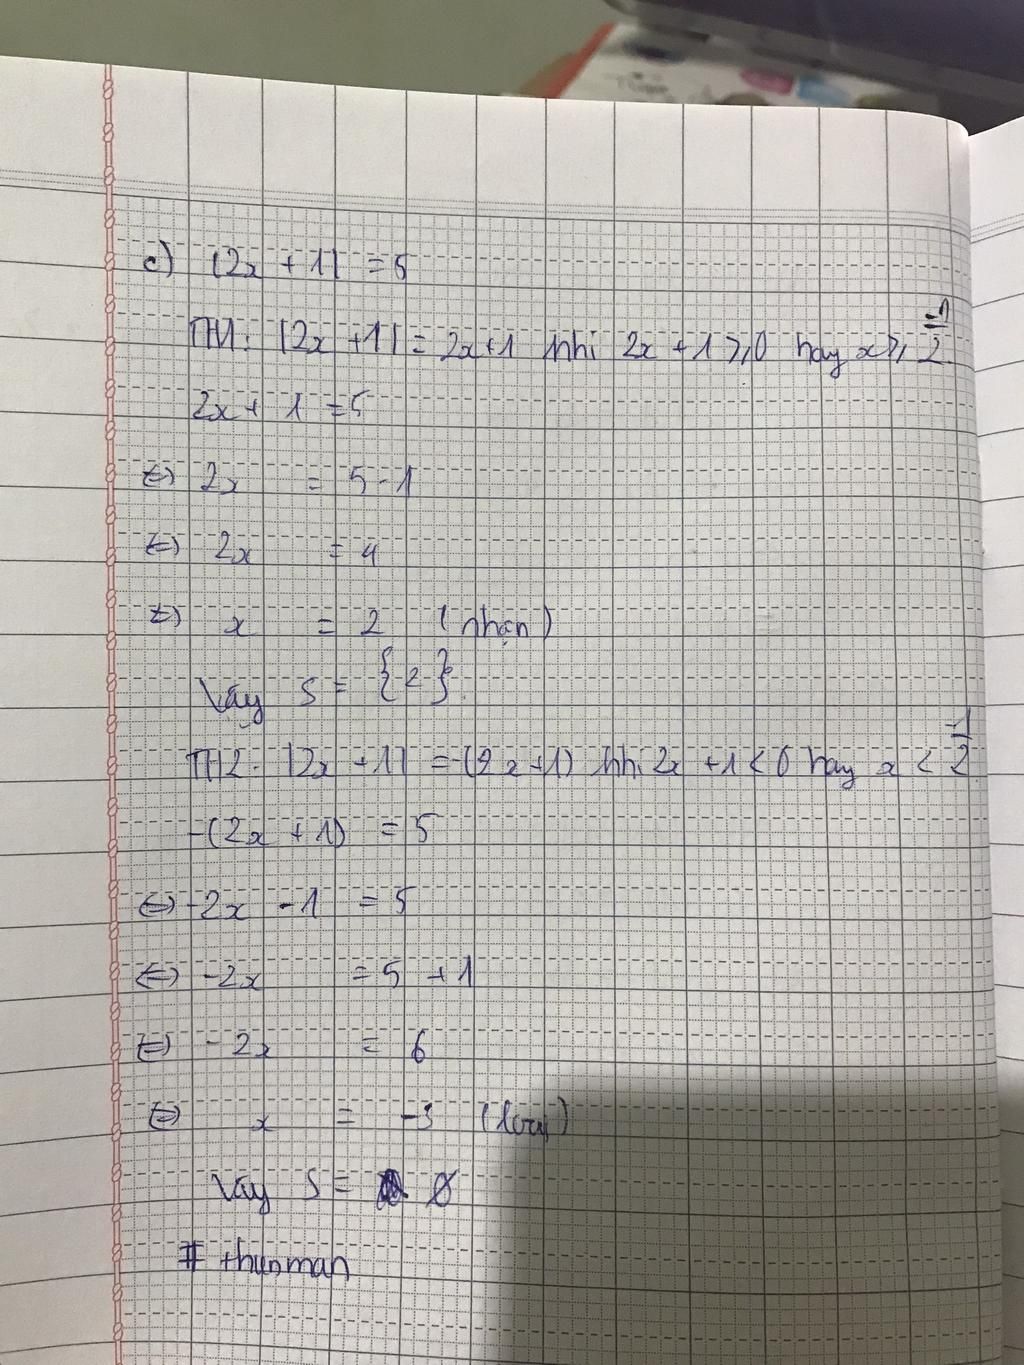 c) |2x + 1| = 5
TH1: |2x + 1| = 2x + 1 khi 2x + 1 ≥ 0 hay x ≥ -1/2
2x + 1 = 5
⇔ 2x = 5 - 1
⇔ 2x = 4
⇔ x = 2 (nhận)
Vậy S = {2}.
TH2: |2x + 1| = -(2x + 1) khi 2x + 1 < 0 hay x < -1/2
-(2x + 1) = 5
⇔ -2x - 1 = 5
⇔ -2x = 5 + 1
⇔ -2x = 6
⇔ x = -3 (loại)
Vậy S = Ø